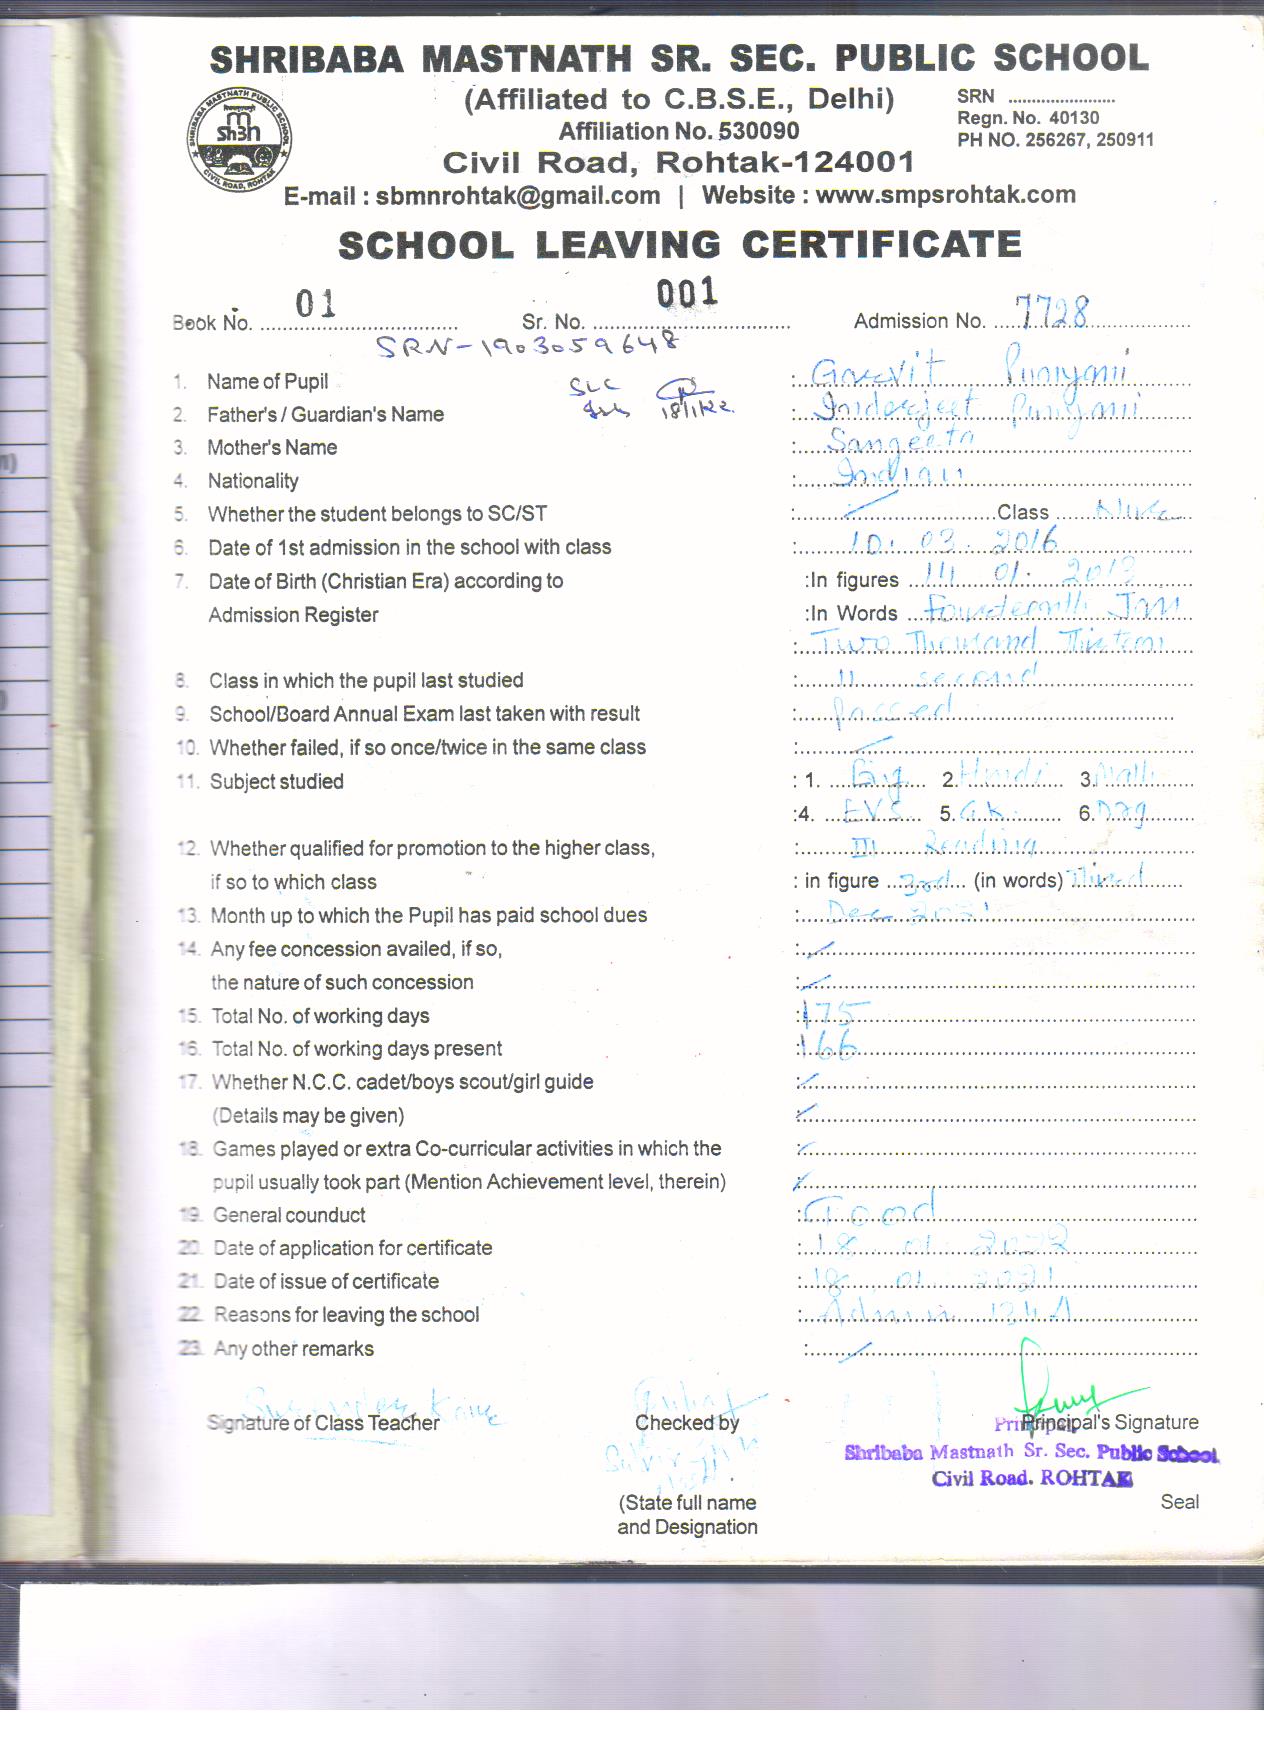 SHRIBABA MASTNATH SR. SEC. PUBLIC SCHOOL
(Affiliated to C.B.S.E., Delhi)
SRN ........................
Affiliation No. 530090
Regn. No. 40130
PH NO. 256267, 250911
Civil Road, Rohtak-124001
E-mail : sbmnrohtak@gmail.com | Website : www.smpsrohtak.com
SCHOOL LEAVING CERTIFICATE
Book No. 01 Sr. No. 001 Admission No. 7728
SRN-1903059648
SLC
1. Name of Pupil : Gravit Puniyani
2. Father's / Guardian's Name : Inderjeet Puniyani
3. Mother's Name : Sangeeta
4. Nationality : Indian
5. Whether the student belongs to SC/ST : Class
6. Date of 1st admission in the school with class : 10. 03. 2016
7. Date of Birth (Christian Era) according to :In figures 14 01. 2013
Admission Register :In Words Fourteenth Jan
: Two Thousand Thirteen
8. Class in which the pupil last studied : II second
9. School/Board Annual Exam last taken with result : Passed
10. Whether failed, if so once/twice in the same class :
11. Subject studied : 1. Eng 2. Hindi 3. Math
:4. EVS 5. G.K. 6.
12. Whether qualified for promotion to the higher class, : III Reading
if so to which class : in figure 3rd (in words) Third
13. Month up to which the Pupil has paid school dues : Dec 2021
14. Any fee concession availed, if so, :
the nature of such concession :
15. Total No. of working days : 175
16. Total No. of working days present : 166
17. Whether N.C.C. cadet/boys scout/girl guide :
(Details may be given)
18. Games played or extra Co-curricular activities in which the :
pupil usually took part (Mention Achievement level, therein)
19. General counduct : Good
20. Date of application for certificate : 18. 01. 2022
21. Date of issue of certificate : 18. 01. 2021
22. Reasons for leaving the school :
23. Any other remarks :
Signature of Class Teacher Checked by Principal's Signature
Principal
Shribaba Mastnath Sr. Sec. Public School
Civil Road. ROHTAK
(State full name Seal
and Designation